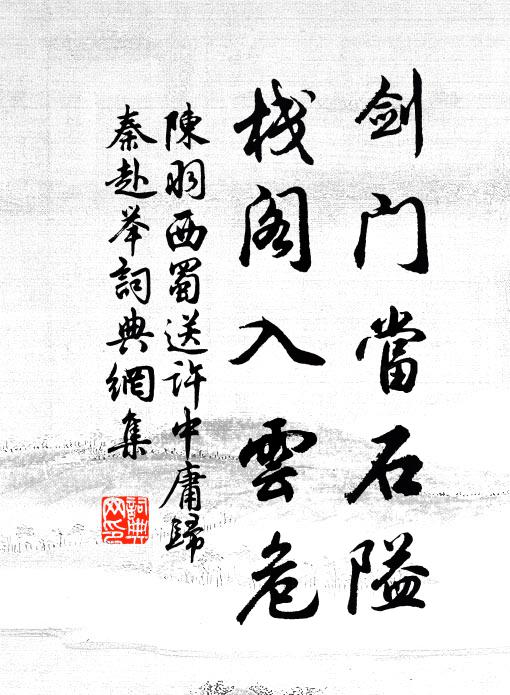 剑门當石隘
栈阁入雲危
陳羽西蜀送许中庸歸
秦赴举詞典網集
詞典
网印